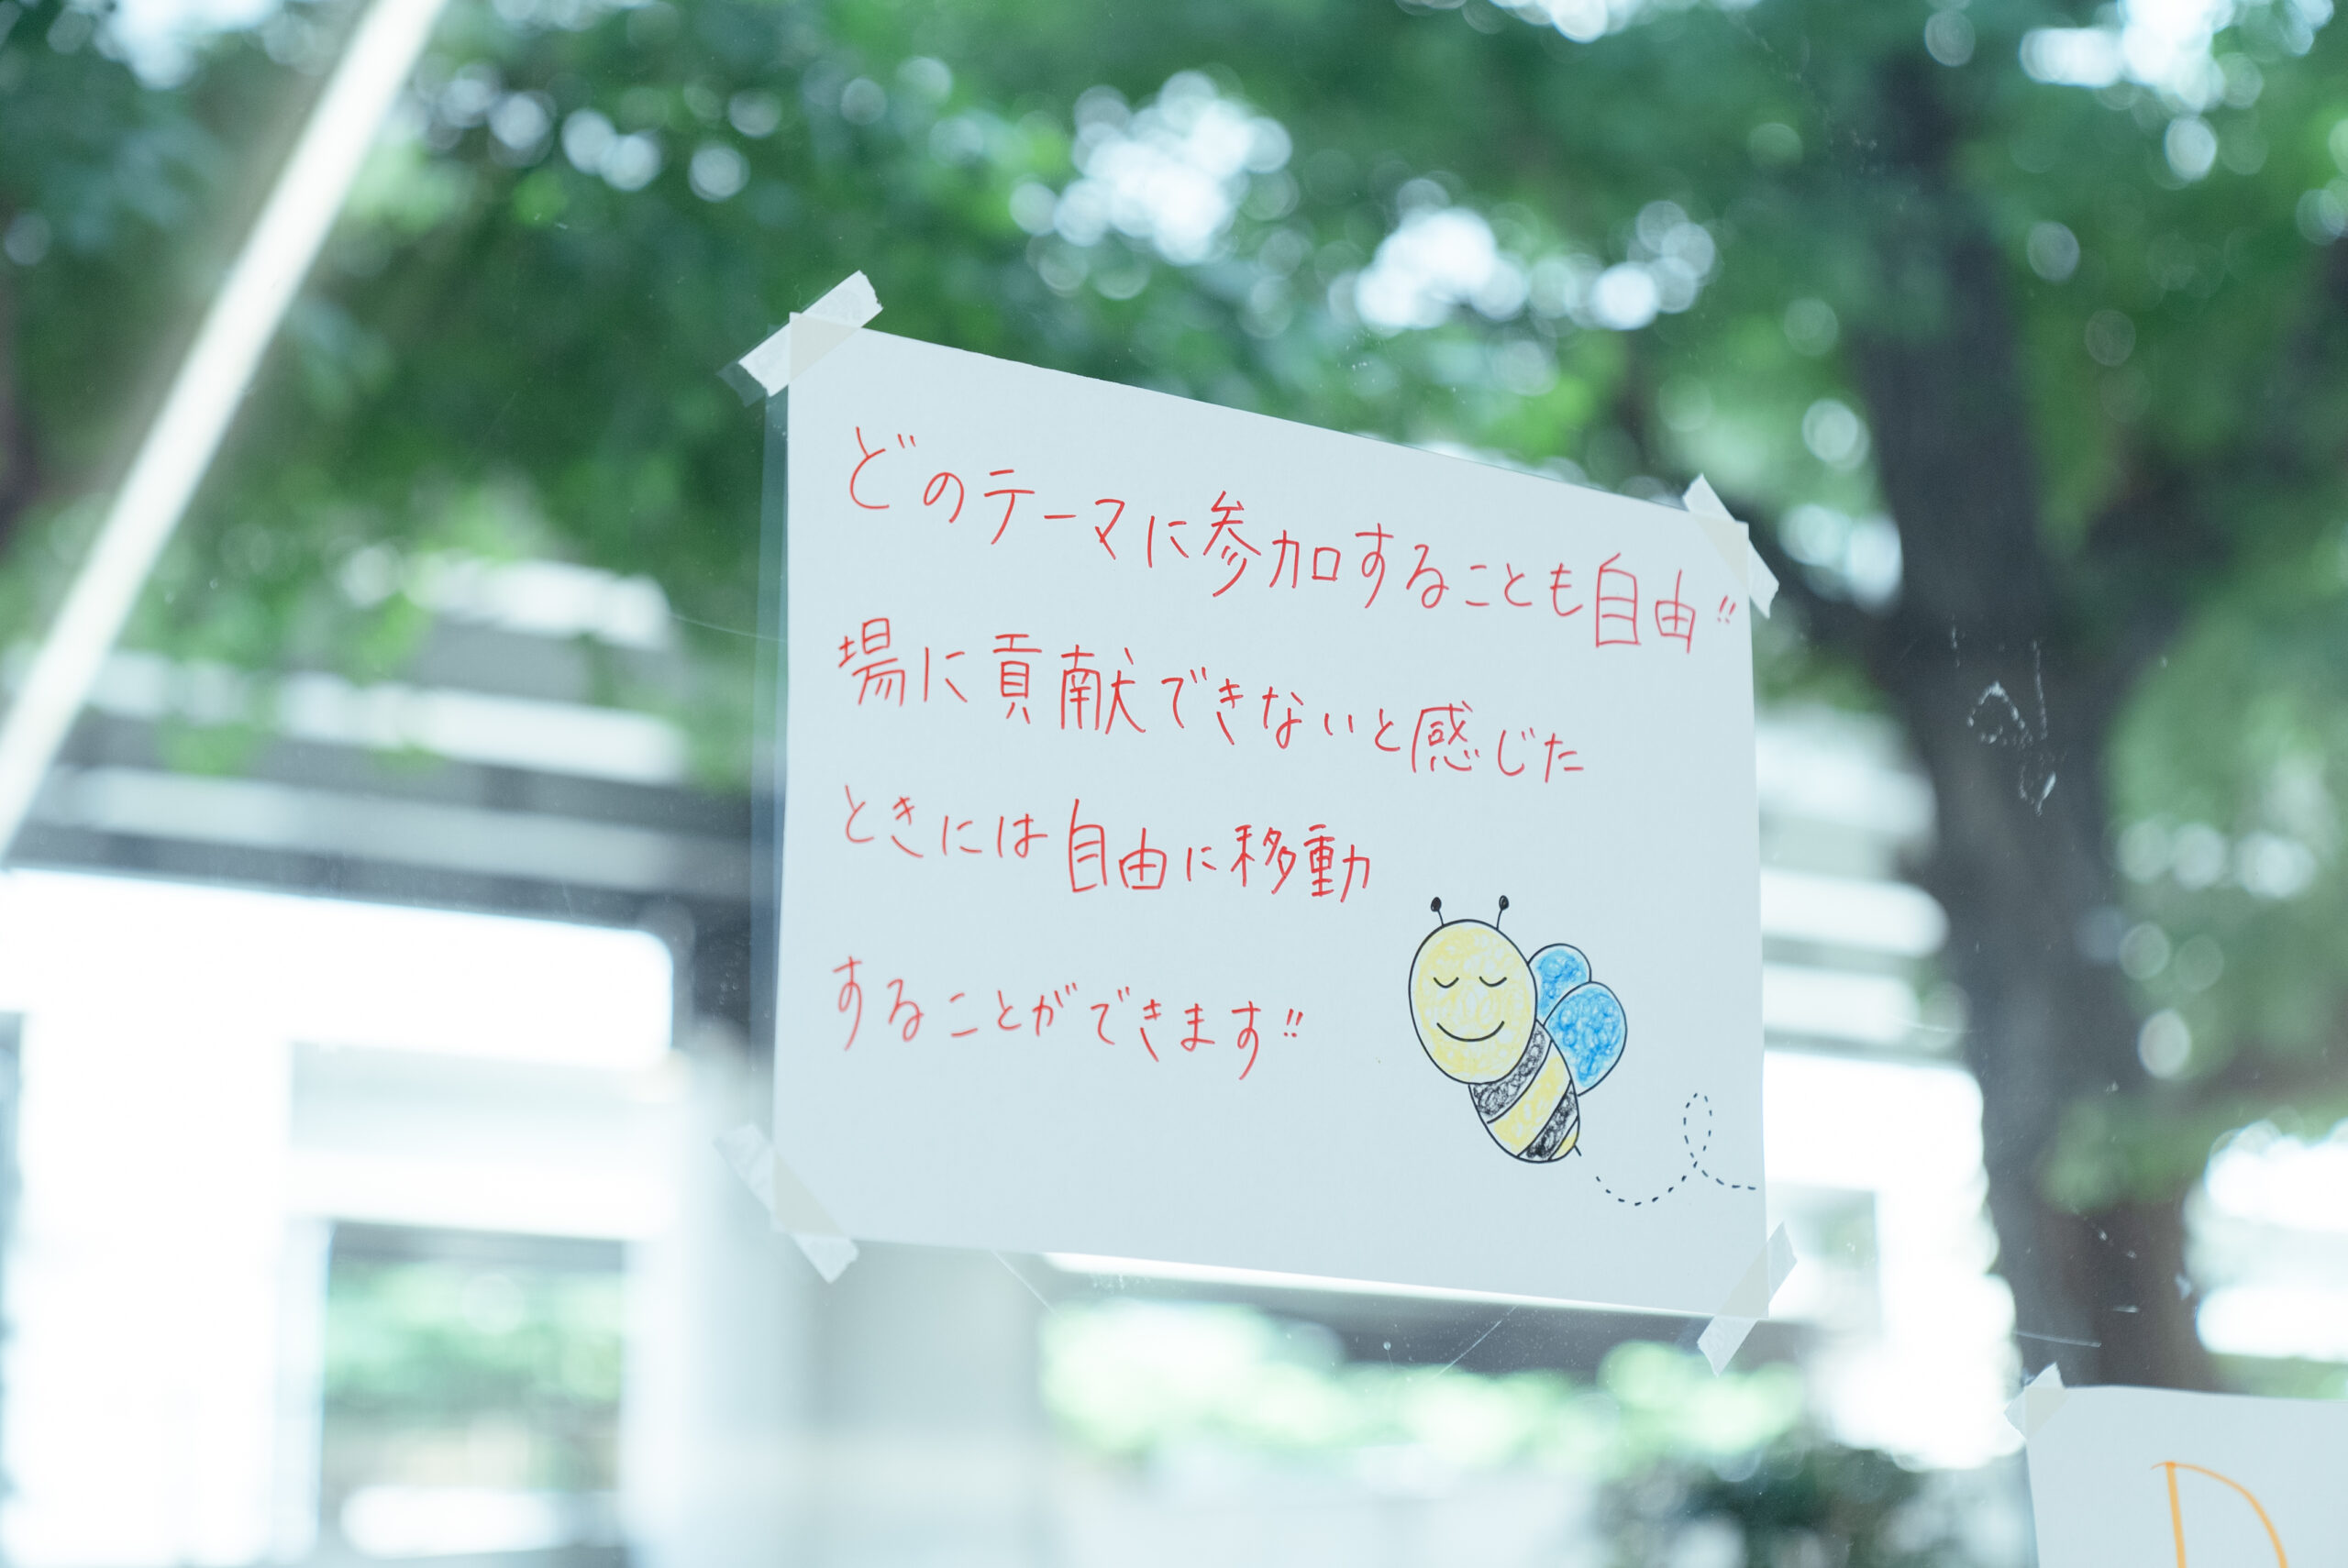 どのテーマに参加することも自由!!
場に貢献できないと感じた
ときには自由に移動
することができます!!
D